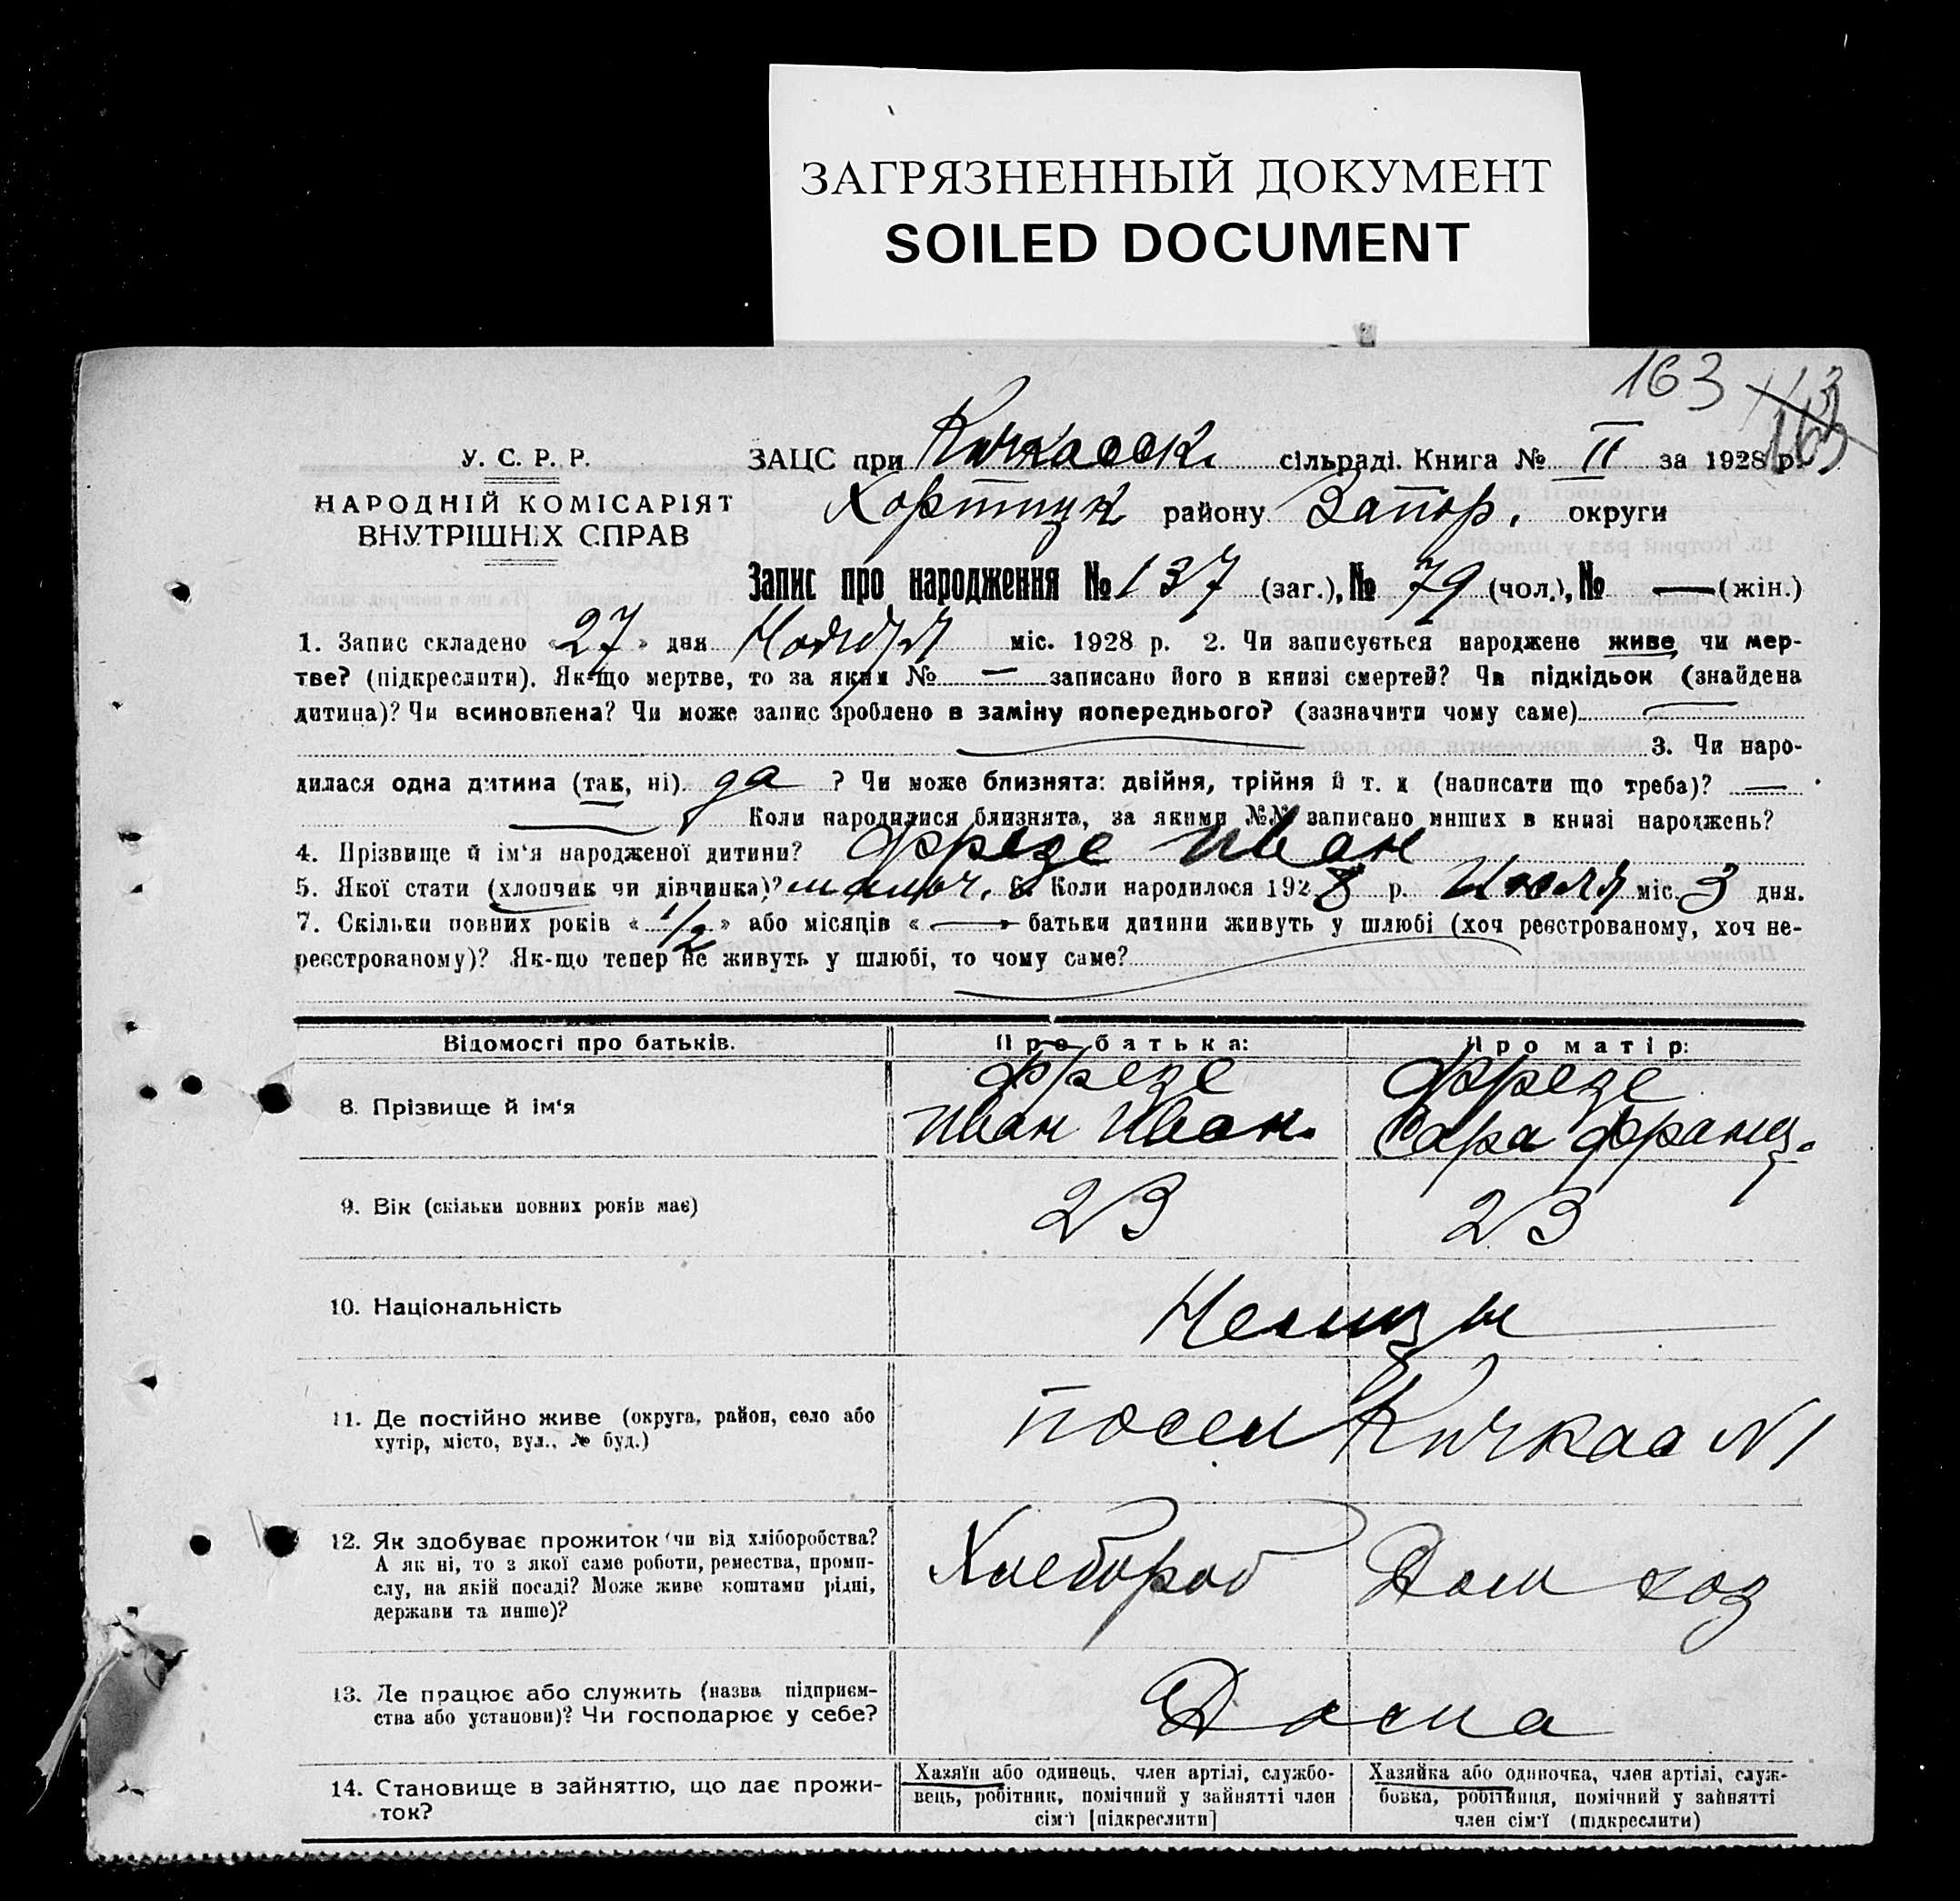 ЗАГРЯЗНЕННЫЙ ДОКУМЕНТ
SOILED DOCUMENT
163
У. С. Р. Р.
НАРОДНІЙ КОМІСАРІЯТ
ВНУТРІШНІХ СПРАВ
ЗАЦС при Кичкасск. сільраді. Книга № II за 1928 р.
Хортицк району Запор. округи
Запис про народження № 137 (заг.), № 79 (чол.), № — (жін.)
1. Запис складено «27» дня Ноября міс. 1928 р. 2. Чи записується народжене живе чи мер-
тве? (підкреслити). Як-що мертве, то за яким № — записано його в книзі смертей? Чи підкідьок (знайдена
дитина)? Чи всиновлена? Чи може запис зроблено в заміну попереднього? (зазначити чому саме)
3. Чи наро-
дилася одна дитина (так, ні) да ? Чи може близнята: двійня, трійня й т. д (написати що треба)? —
Коли народилися близнята, за якими №№ записано инших в книзі народжень?
4. Прізвище й ім'я народженої дитини? Фрезе Иван
5. Якої стати (хлопчик чи дівчинка)? мальч. 6. Коли народилося 1928 р. Июля міс. 3 дня.
7. Скільки повних років «1/2» або місяців «—» батьки дитини живуть у шлюбі (хоч реєстрованому, хоч не-
реєстрованому)? Як-що тепер не живуть у шлюбі, то чому саме?
Відомості про батьків.
Про батька:
Про матір:
8. Прізвище й ім'я
Фрезе
Иван Иван.
Фрезе
Сара Франц.
9. Вік (скільки повних років має)
23
23
10. Національність
Немцы
11. Де постійно живе (округа, район, село або
хутір, місто, вул., № буд.)
посел Кичкас N 1
12. Як здобуває прожиток (чи від хліборобства?
А як ні, то з якої саме роботи, ремества, проми-
слу, на якій посаді? Може живе коштами рідні,
держави та инше)?
Хлебороб
Дом хоз
13. Де працює або служить (назва підприєм-
ства або установи)? Чи господарює у себе?
Дома
14. Становище в зайняттю, що дає прожи-
ток?
Хазяїн або одинець, член артілі, службо-
вець, робітник, помічний у зайнятті член
сім'ї [підкреслити]
Хазяйка або одиночка, член артілі, служ-
бовка, робітниця, помічний у зайнятті
член сім'ї (підкреслити)